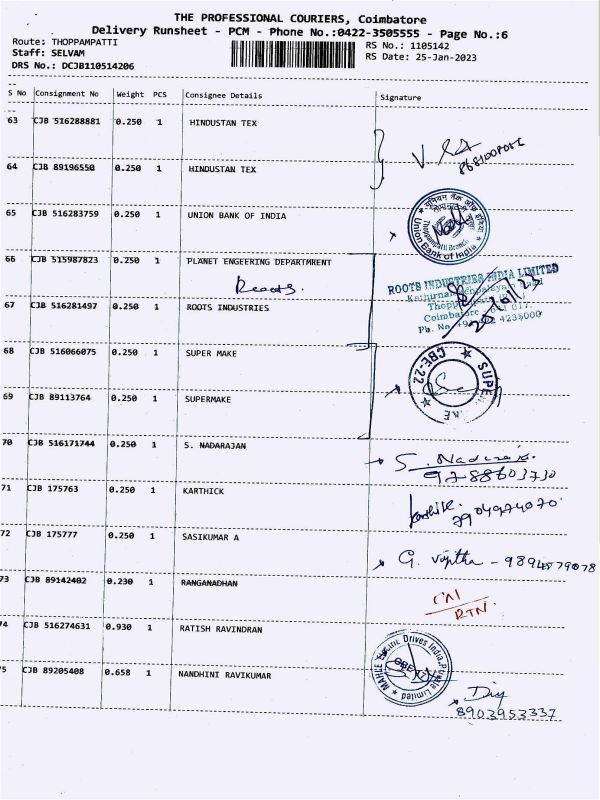 THE PROFESSIONAL COURIERS, Coimbatore
Delivery Runsheet - PCM - Phone No.:0422-3505555 - Page No.:6
Route: THOPPAMPATTI RS No.: 1105142
Staff: SELVAM RS Date: 25-Jan-2023
DRS No.: DCJB110514206
S No Consignment No Weight PCS Consignee Details Signature
63 CJB 516288881 0.250 1 HINDUSTAN TEX
64 CJB 89196550 0.250 1 HINDUSTAN TEX
65 CJB 516283759 0.250 1 UNION BANK OF INDIA
Union Bank of India
66 CJB 515987823 0.250 1 PLANET ENGEERING DEPARTMRENT
Roots.
ROOTS INDUSTRIES INDIA LIMITED
67 CJB 516281497 0.250 1 ROOTS INDUSTRIES
Coimbatore
68 CJB 516066075 0.250 1 SUPER MAKE
CBE-22
69 CJB 89113764 0.250 1 SUPERMAKE
70 CJB 516171744 0.250 1 S. NADARAJAN
S. Nadaraja
9788603730
71 CJB 175763 0.250 1 KARTHICK
72 CJB 175777 0.250 1 SASIKUMAR A
73 CJB 89142402 0.230 1 RANGANADHAN
RTN.
74 CJB 516274631 0.930 1 RATISH RAVINDRAN
MAHLE Electric Drives India Private Limited
75 CJB 89205408 0.658 1 NANDHINI RAVIKUMAR
8903953337